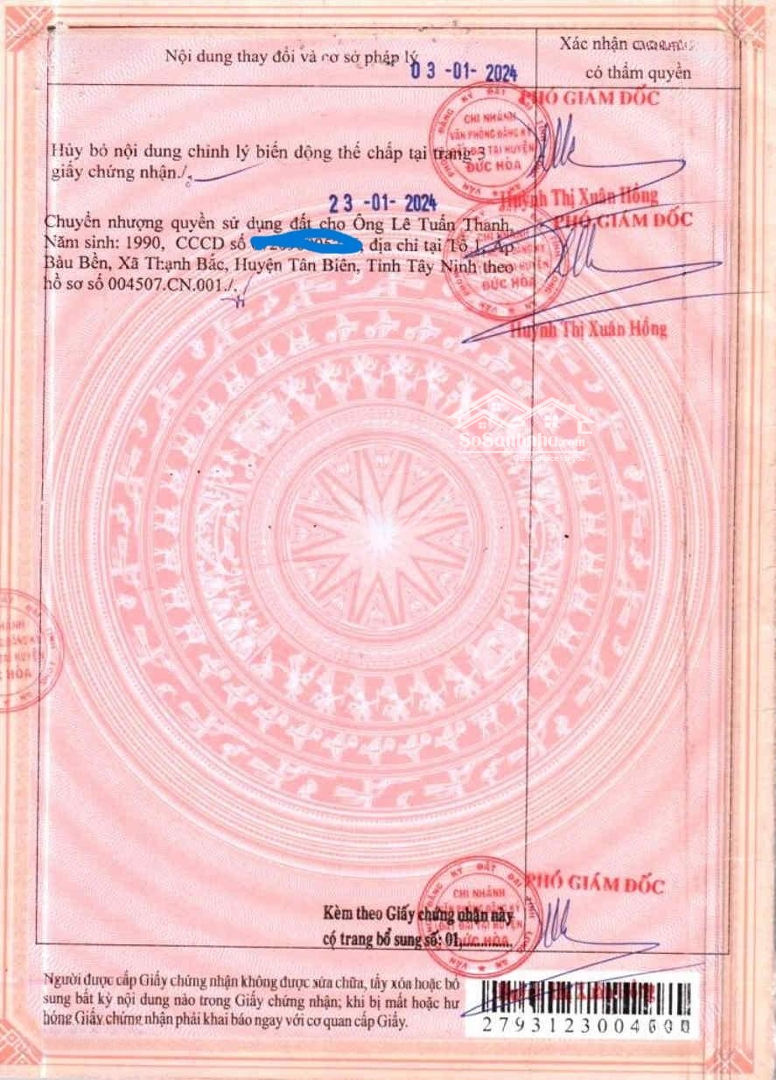 Nội dung thay đổi và cơ sở pháp lý
Xác nhận
có thẩm quyền
03-01-2024
PHÓ GIÁM ĐỐC
CHI NHÁNH
VĂN PHÒNG ĐĂNG KÝ
ĐẤT ĐAI TẠI HUYỆN
ĐỨC HÒA
Hủy bỏ nội dung chỉnh lý biến động thế chấp tại trang 3
giấy chứng nhận./.
Huỳnh Thị Xuân Hồng
23-01-2024
PHÓ GIÁM ĐỐC
Chuyển nhượng quyền sử dụng đất cho Ông Lê Tuấn Thanh,
Năm sinh: 1990, CCCD số , địa chỉ tại Tổ 1, Ấp
Bàu Bền, Xã Thạnh Bắc, Huyện Tân Biên, Tỉnh Tây Ninh theo
hồ sơ số 004507.CN.001./.
Huỳnh Thị Xuân Hồng
SoSanhnha.com
ĐỨC HÒA
PHÓ GIÁM ĐỐC
CHI NHÁNH
VĂN PHÒNG ĐĂNG KÝ
ĐẤT ĐAI TẠI HUYỆN
ĐỨC HÒA
Kèm theo Giấy chứng nhận này
có trang bổ sung số: 01,
Người được cấp Giấy chứng nhận không được sửa chữa, tẩy xóa hoặc bổ
sung bất kỳ nội dung nào trong Giấy chứng nhận; khi bị mất hoặc hư
hỏng Giấy chứng nhận phải khai báo ngay với cơ quan cấp Giấy.
2793123004600